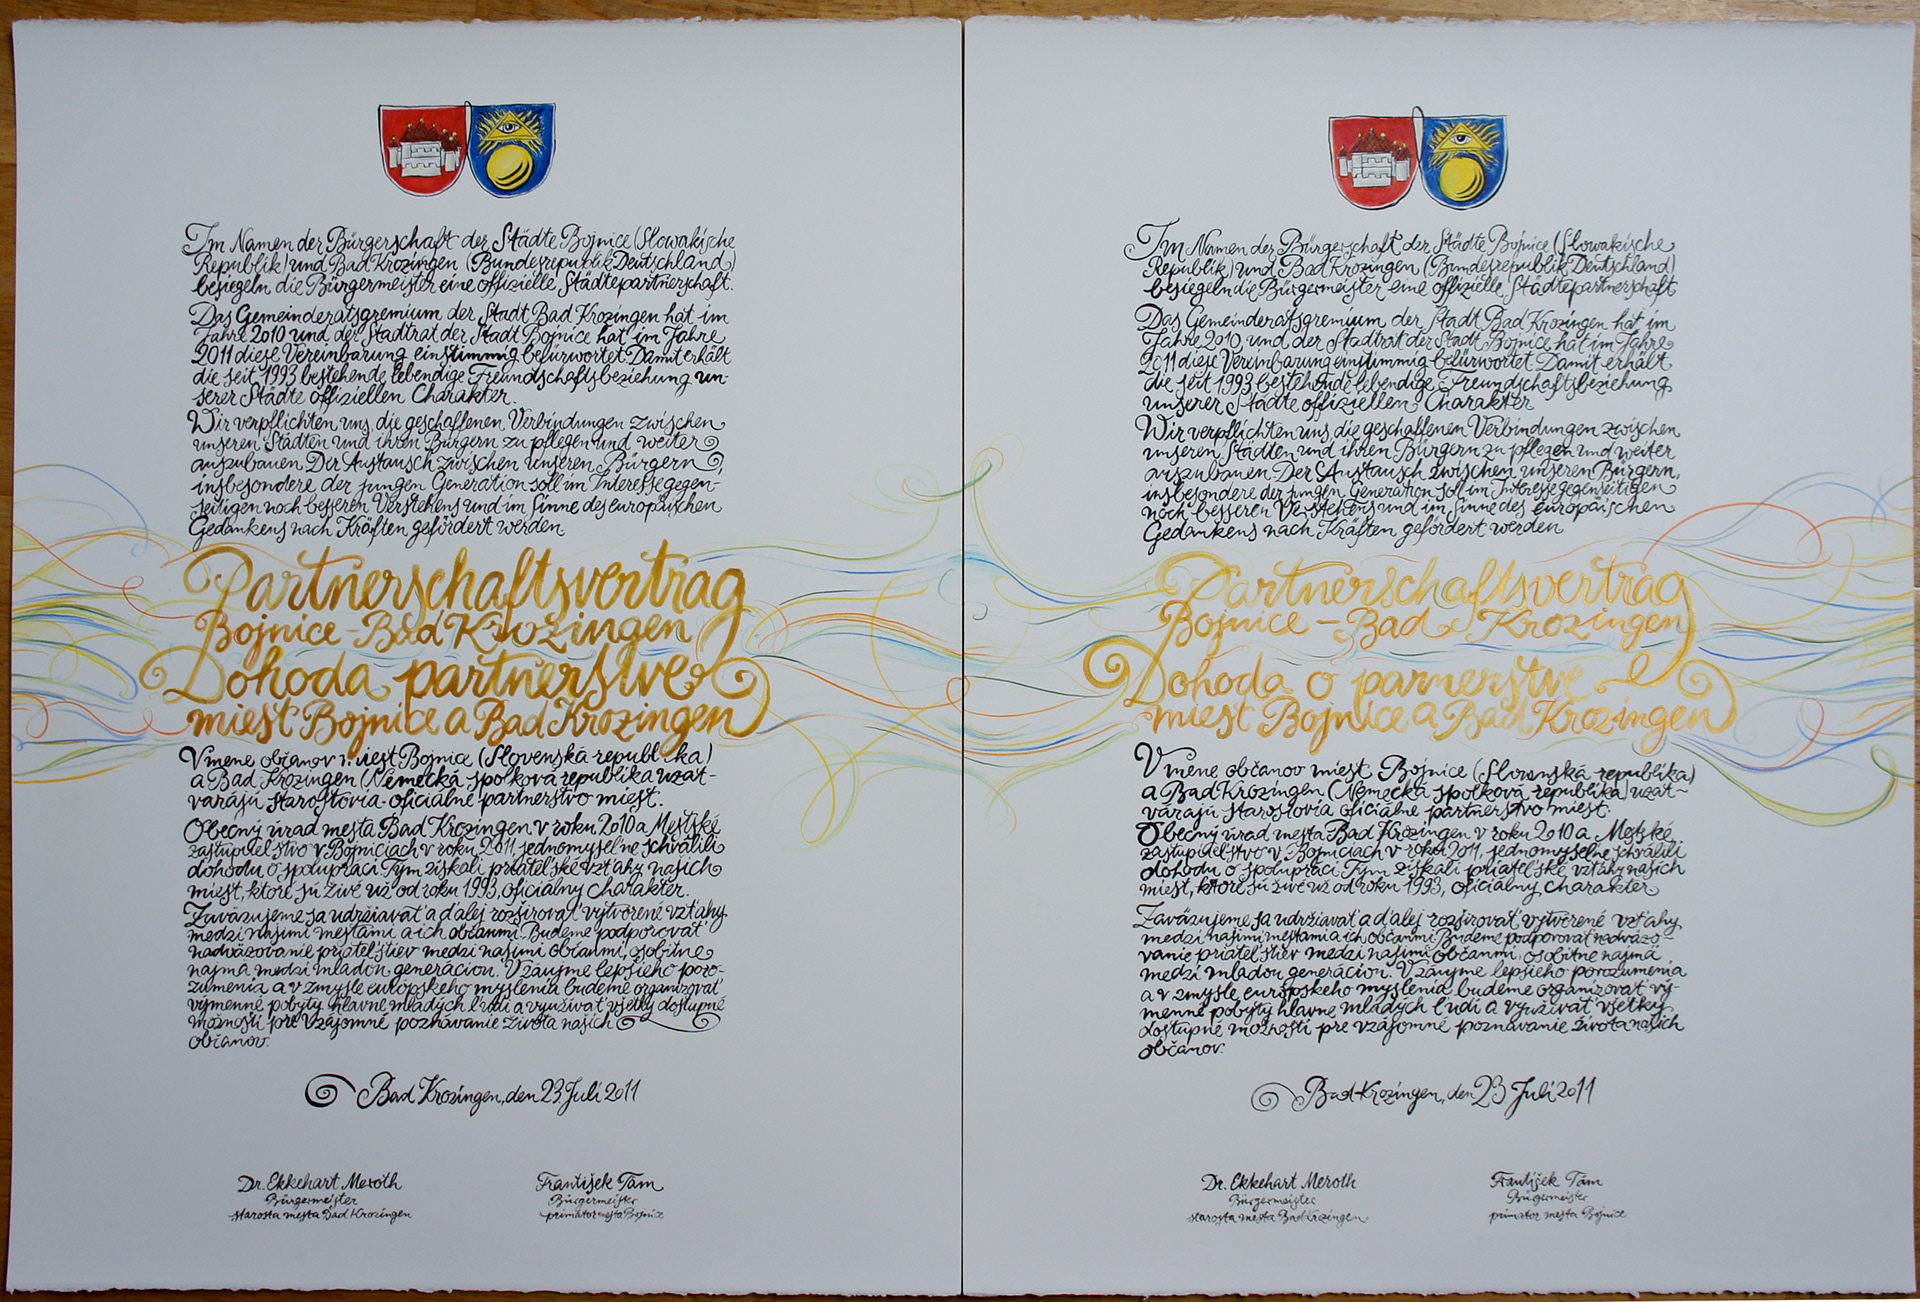 Im Namen der Bürgerschaft der Städte Bojnice (Slowakische
Republik) und Bad Krozingen (Bundesrepublik Deutschland)
besiegeln die Bürgermeister eine offizielle Städtepartnerschaft.
Das Gemeinderatsgremium der Stadt Bad Krozingen hat im
Jahre 2010 und der Stadtrat der Stadt Bojnice hat im Jahre
2011 diese Vereinbarung einstimmig befürwortet. Damit erhält
die seit 1993 bestehende lebendige Freundschaftsbeziehung un-
serer Städte offiziellen Charakter.
Wir verpflichten uns, die geschaffenen Verbindungen zwischen
unseren Städten und ihren Bürgern zu pflegen und weiter
auszubauen. Der Austausch zwischen unseren Bürgern,
insbesondere der jungen Generation soll im Interesse gegen-
seitigen noch besseren Verstehens und im Sinne des europäischen
Gedankens nach Kräften gefördert werden.
Partnerschaftsvertrag
Bojnice - Bad Krozingen
Dohoda partnerstve
miest Bojnice a Bad Krozingen
V mene občanov miest Bojnice (Slovenská republika)
a Bad Krozingen (Nemecká spolková republika uzat-
varajú starostovia oficiálne partnerstvo miest.
Obecný úrad mesta Bad Krozingen v roku 2010 a Mestské
zastupiteľstvo v Bojniciach v roku 2011, jednomyseľne schválili
dohodu o spolupráci. Tým získali priateľské vzťahy našich
miest, ktoré sú živé už od roku 1993, oficiálny charakter.
Zaväzujeme sa udržiavať a ďalej rozširovať vytvorené vzťahy
medzi našimi mestami a ich občanmi. Budeme podporovať
nadväzovanie priateľstiev medzi našimi občanmi, osobitne
najmä medzi mladou generáciou. V záujme lepšieho poro-
zumenia a v zmysle európskeho myslenia budeme organizovať
výmenné pobyty hlavne mladých ľudí a využívať všetky dostupné
možnosti pre vzájomné poznávanie života našich
občanov.
Bad Krozingen, den 23. Juli 2011
Dr. Ekkehart Meroth
Bürgermeister
starosta mesta Bad Krozingen
František Tám
Bürgermeister
primátor mesta Bojnice
Im Namen der Bürgerschaft der Städte Bojnice (Slowakische
Republik) und Bad Krozingen (Bundesrepublik Deutschland)
besiegeln die Bürgermeister eine offizielle Städtepartnerschaft
Das Gemeinderatsgremium der Stadt Bad Krozingen hat im
Jahre 2010 und der Stadtrat der Stadt Bojnice hat im Jahre
2011 diese Vereinbarung einstimmig befürwortet. Damit erhält
die seit 1993 bestehende lebendige Freundschaftsbeziehung
unserer Städte offiziellen Charakter
Wir verpflichten uns, die geschaffenen Verbindungen zwischen
unseren Städten und ihren Bürgern zu pflegen und weiter
auszubauen. Der Austausch zwischen unseren Bürgern,
insbesondere der jungen Generation soll im Interesse gegenseitigen
noch besseren Verstehens und im Sinne des europäischen
Gedankens nach Kräften gefördert werden
Partnerschaftsvertrag
Bojnice - Bad Krozingen
Dohoda o parnerstve
miest Bojnice a Bad Krozingen
V mene občanov miest Bojnice (Slovenská republika)
a Bad Krozingen (Nemecká spolková republika) uzat-
várajú starostovia oficiálne partnerstvo miest.
Obecný úrad mesta Bad Krozingen v roku 2010 a Mestské
zastupiteľstvo v Bojniciach v roku 2011, jednomyseľne schválili
dohodu o spolupráci. Tým získali priateľské vzťahy našich
miest, ktoré sú živé už od roku 1993, oficiálny charakter.
Zaväzujeme sa udržiavať a ďalej rozširovať vytvorené vzťahy
medzi našimi mestami a ich občanmi. Budeme podporovať nadväzo-
vanie priateľstiev medzi našimi občanmi, osobitne najmä
medzi mladou generáciou. V záujme lepšieho porozumenia
a v zmysle európskeho myslenia budeme organizovať vý-
menné pobyty hlavne mladých ľudí a využívať všetky
dostupné možnosti pre vzájomné poznávanie života našich
občanov.
Bad Krozingen, den 23. Juli 2011
Dr. Ekkehart Meroth
Bürgermeister
starosta mesta Bad Krozingen
František Tám
Bürgermeister
primátor mesta Bojnice